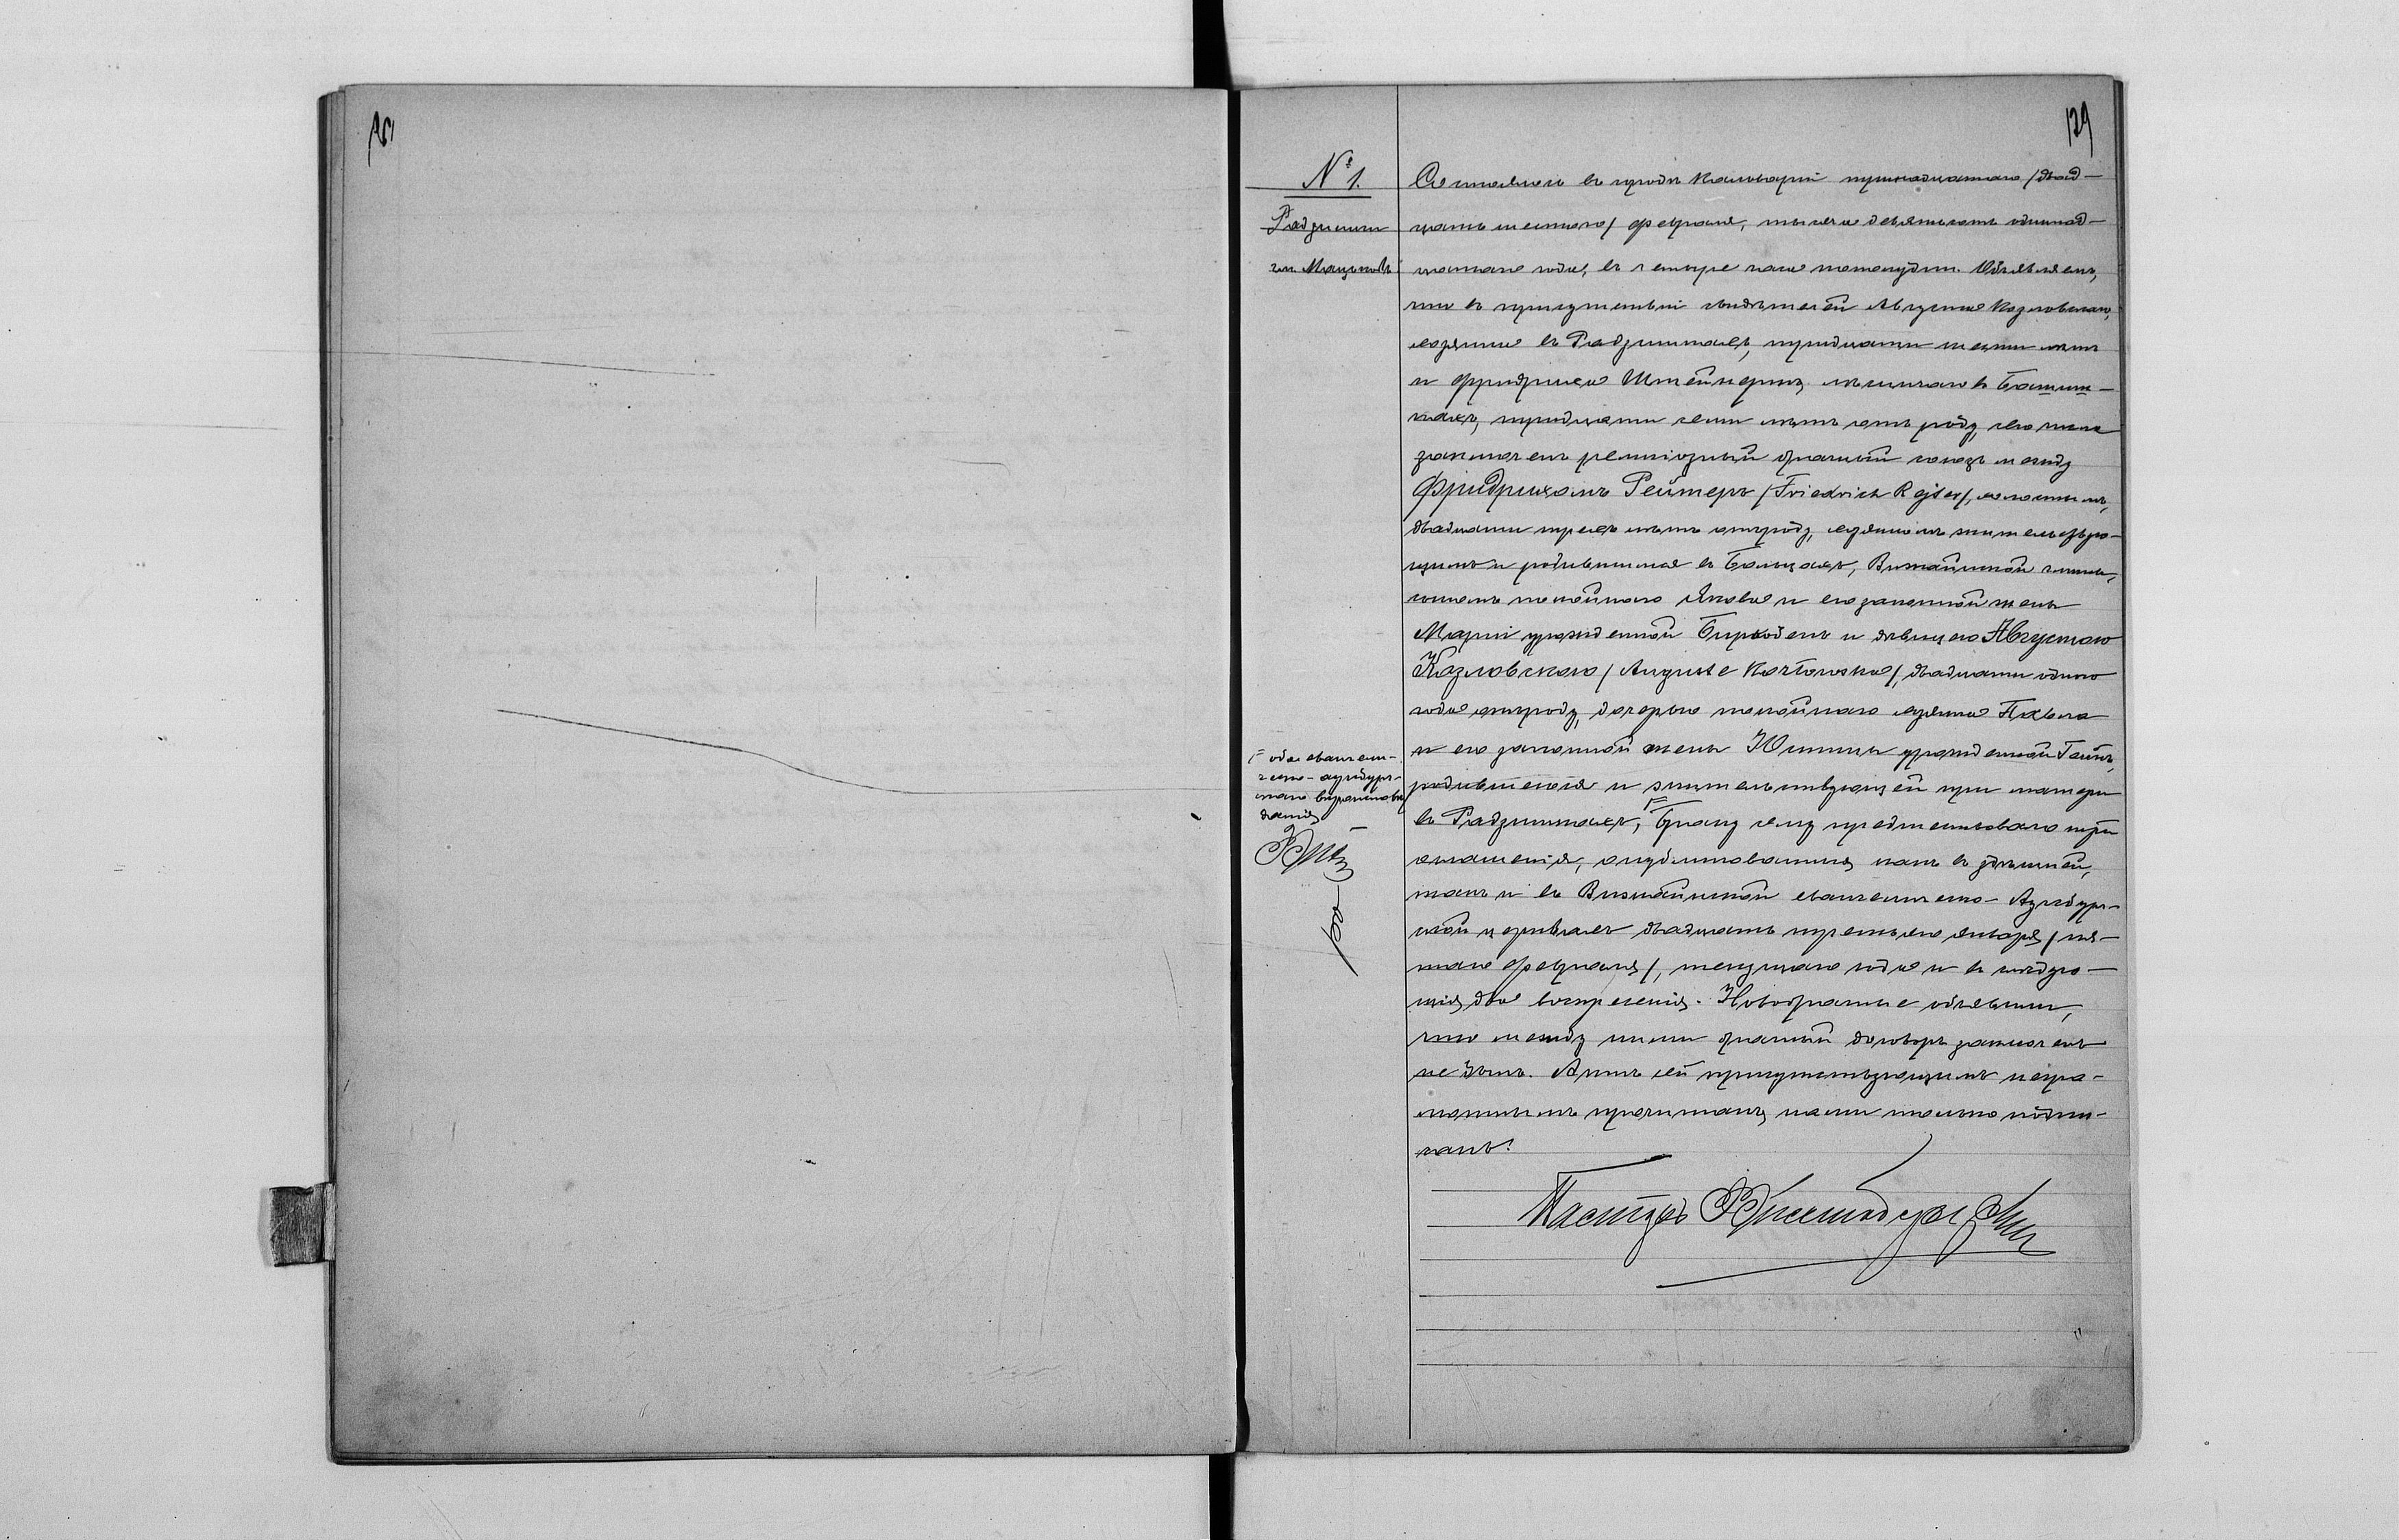 129
№ 1.
Радзишки
гм. Мацьковъ
Состоялось въ городѣ Кальваріи тринадцатаго /двад-
цать шестого/ февраля, тысяча девятьсотъ одиннад-
цатаго года, въ четыре часа пополудни. Объявляемъ,
что въ присутствіи свидѣтелей Августа Козловскаго,
хозяина въ Радзишкахъ, тридцати шести лѣтъ
и Фридриха Штейнертъ,
тридцати семи лѣтъ отъ роду, сего числа
заключенъ религіозный брачный союзъ между
Фридрихомъ Рейтеръ /Friedrich Rejter/, холостымъ,
двадцати трехъ лѣтъ отъ роду, хозяиномъ жительствую-
щимъ и родившимся въ Больцахъ, Вижайнской гмины,
сыномъ покойнаго Якова и его законной жены
Маріи урожденной Бирходенъ и дѣвицею Августою
Козловскою /Auguste Kozłowska/, двадцати одного
года отъ роду, дочерью покойнаго хозяина Павла
и его законной жены Юстины урожденной Гейнъ,
родившеюся и жительствующей при матери
въ Радзишкахъ, ⌈ Браку сему предшествовало три
оглашенія, опубликованныя какъ въ здѣшней,
такъ и въ Вижайнской евангелическо-Аугсбург-
ской церквахъ двадцать третьяго января /пя-
таго февраля/, текущаго года и въ слѣдую-
щія два воскресенія. Новобрачные объявили,
что между ними брачный договоръ заключенъ
не былъ. Актъ сей присутствующимъ негра-
мотнымъ прочитанъ, нами только подпи-
санъ.
⌈ оба евангели-
ческо-аугсбург-
скаго вѣроисповѣ-
данія
Пасторъ